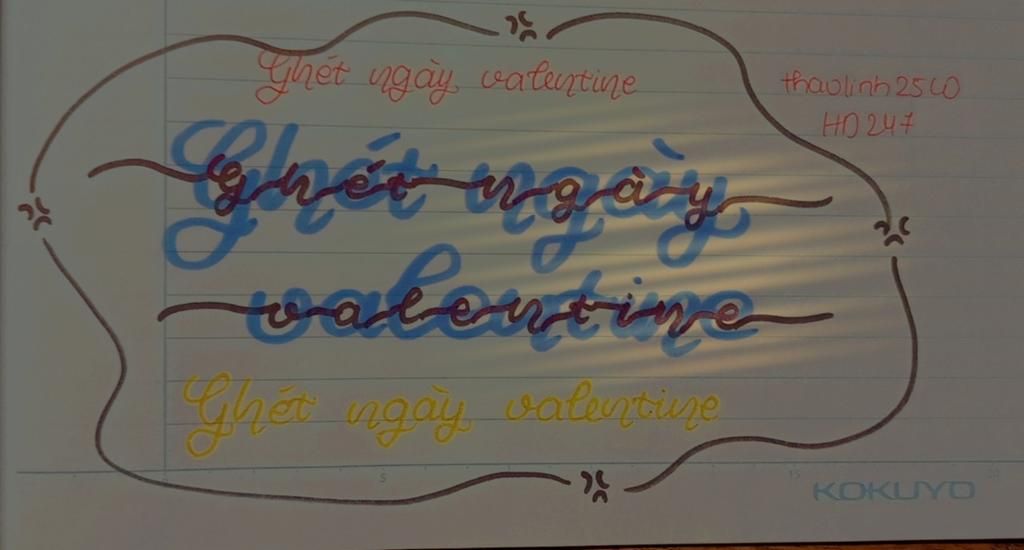 Ghét ngày valentine
thaolinh25LO
HD247
Ghét ngày
Ghét ngày
valentine
valentine
Ghét ngày valentine
5
15
20
KOKUYO